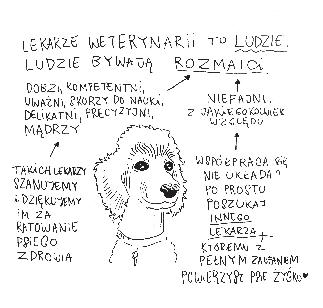 LEKARZE WETERYNARII TO LUDZIE.
LUDZIE BYWAJĄ ROZMAICI.
DOBZI, KOMPETENTNI,
UWAŻNI, SKORZY DO NAUKI,
DELIKATNI, PRECYZYJNI,
MĄDRZY
NIEFAJNI.
Z JAKIEGOKOLWIEK
WZGLĘDU
TAKICH LEKARZY
SZANUJEMY
I DZIĘKUJEMY
IM ZA
RATOWANIE
PSIEGO
ZDROWIA
WSPÓŁPRACA SIĘ
NIE UKŁADA?
PO PROSTU
POSZUKAJ
INNEGO
LEKARZA,
KTÓREMU Z
PEŁNYM ZAUFANIEM
POWIERZYSZ PSIE ŻYCIE♥